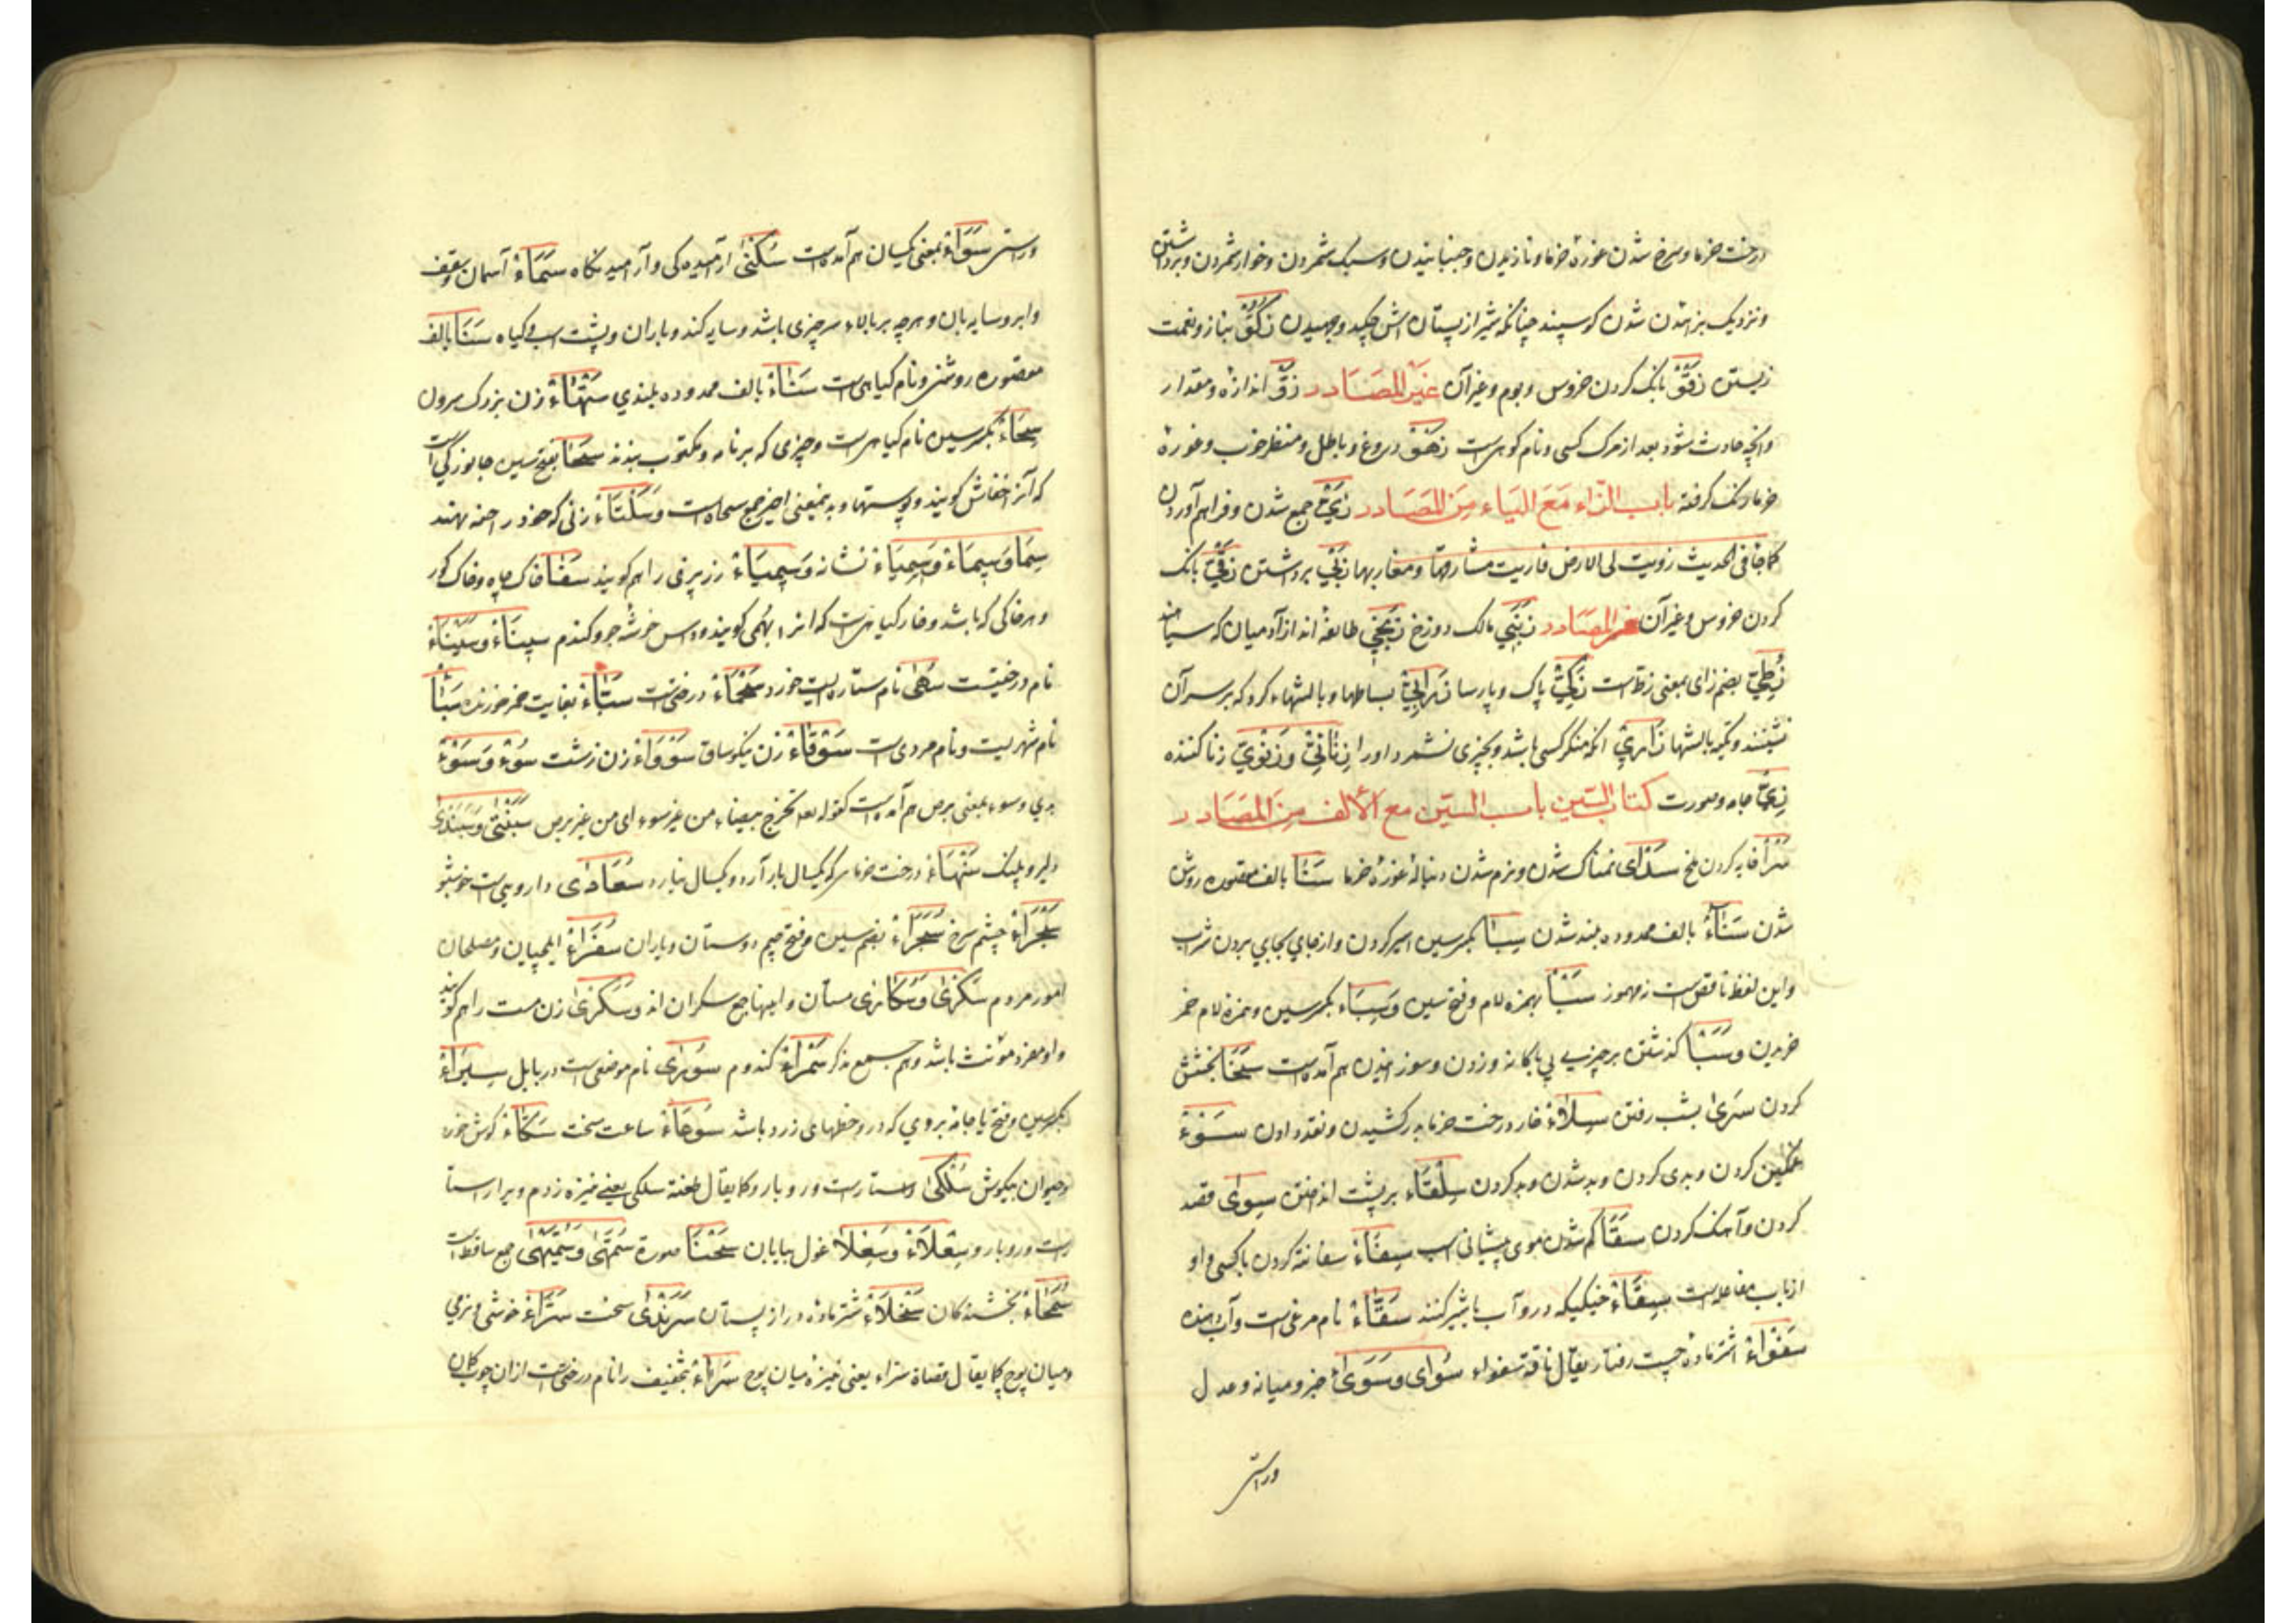 درخت خرما و سرخ شدن غوزۀ خرما و نازیدن و جنبانیدن و سبک شمردن و خوار شمردن و برداشتن
و نزدیک بزائیدن شدن کوسپند چنانکه شیر از پستان اش چکید و چسپیدن بناز و نعمت
زیستن بانک کردن خروس و بوم و غیر آن غَیرُ المَصَادر اندازه و مقدار
و آنچه حادث شود بعد از مرک کسی و نام کوهی است زهَقٌ دروغ و باطل و منظر خوب و غوره
خرما رنک کرفته باب الزاء مَعَ الیَاء مِنَ المَصَادر زَیٌّ جمع شدن و فراهم آوردن
کما جاء فی الحدیث زویت لی الارض فاریت مشارقها و مغاربها زَبْیٌ برداشتن زَقْیٌ بانک
کردن خروس و غیر آن غیر المصَادر زِبْنِیٌّ مالک دوزخ زَنْجِیٌّ طائفۀ اند از آدمیان که سیاه‌اند
زُطِّیٌّ بضم زای بمعنی زط است زَکِیٌّ پاک و پارسا زَرَابِیُّ بساطها و بالشهاء که بر سر آن
نشینند و تکیه بالشها زَارِیٌ آنکه منکر کسی باشد و بچیزی نشمرد او را زَانِیٌ وَزَنَوِیٌّ زنا کننده
زِیٌّ جامه و صورت کتاب السّین باب السّین مع الألف مِنَ المَصَادر
فایه کردن ملخ سَدَای نمناک شدن و نرم شدن دنبالۀ غوزۀ خرما سَنَا بالف مقصوره روشن
شدن سَنَاءٌ بالف ممدوده بلند شدن سِبَا بکسر سین اسیر کردن و از جای بجایی بردن شراب
و این لفظ ناقص است نه مهموز سَبَأ بهمزه لام و فتح سین وَسِبَاء بکسر سین و همزه لام خمر
خریدن وَسَبَأ کذشتن بر چیزی بی باکانه و زدن و سوزانیدن هم آمده است سَخَا بخشش
کردن سُرَیٰ بشب رفتن سِلَاءٌ خار درخت خرما برکشیدن و نقد دادن سَوْءٌ
غمکین کردن و بدی کردن و بد شدن و بد کردن سِلْقَاء بر پشت انداختن سِوَای قصد
کردن و آهنک کردن سَفَا کم شدن موی پیشانی اسپ سِفَاءٌ سفاهت کردن با کسی و او
از باب مفاعله است سِقَاءٌ خیکیکه درو آب یا شیر کنند سَقَّاءٌ نام مرغی است و آب دهنده
سَفْوَاءٌ اشتر ماده چست رفتار یقال ناقة سفواء سُوَای وَسَوَیٰ جز و میانه و عدل
وراستی
وراستی سَوَاءٌ بمعنی یکسان هم آمده است سُکْنَیٰ آرمیده کی و آرامیدنکاه سَمَاءٌ آسمان و سقف
و ابر و سایه بان و هرچه بر بالاء سر چیزی باشد و سایه کند و باران و پشت اسپ و کیاه سَنَا بالف
مقصوره روشنی و نام کیاهی است سَنَاءٌ بالف ممدوده بلندی سَتْهَاءٌ زن بزرک سرون
سِحَاءٌ بکسر سین نام کیاهی است و چیزی که بر نامه و مکتوب بندند سَحَا بفتح سین جانورکی است
که آنرا خفاش کویند و پوستها و بدینمعنی اخیر جمع سحاة است وَسَلْتَاءٌ زنی که خود را حنه نهند
سِیمَا وَسِیمَاءٌ وَسِیمِیَاءٌ نشانه وَسِیمِیَاءٌ زر برفی را هم کویند سَفَا خاک چاه و خاک کور
و هر خاکی که باشد و خار کیاهی است که انرا بهمی کویند و داس خوشه جو و کندم سِینَاءٌ وَسَیْنَاءٌ
نام درختیست سُهَیٰ نام ستاره ایست خورد سَحْمَاءٌ درختیست سَبَّاءٌ بغایت خمر خورنده سَبَأٌ
نام شهریست و نام مردی است سَوْقَاءٌ زن نیکوساق سَوْءَاءٌ زن زشت سُوْءٌ وَسَوْءٌ
بدی و سوء بمعنی برص هم آمده است کقوله تعه تخرج بیضاء من غیر سوء ای من غیر برص سَبَنْتَیٰ وَسَبَنْدَیٰ
دلیر و پلنک سَنْهَاءٌ درخت خرما که یکسال بار آرد و یکسال نیارد سُعَادَی دارویی است خوشبو
سَجْرَاءٌ چشم سرخ سُجَرَاءٌ بضم سین و فتح جیم دوستان و یاران سُفَرَاءٌ ایلچیان و مصلحان
امور مردم سَکْرَیٰ وَسُکَاریٰ مستان و اینها جمع سکران اند وَسَکْرَیٰ زن مست را هم کویند
و او مفرد مؤنث باشد و هم جمع مذکر سَمْرَاءٌ کندم سُورَی نام موضعی است در بابل سِیَرَاءٌ
بکسر سین و فتح یا جامۀ بردی که درو خطهای زرد باشد سَوْعَاءٌ ساعت سخت سَکَّاءٌ کوش خورد
و حیوان بیکوش سُلْکَیٰ راست و روبارو کما یقال طعنة سلکی یعنی نیزه زدم ویرا راستا
راست و روبارو سِعْلَاءٌ وَسِعْلَا غول بیابان سَحْنَا صورة سُمَّهَیٰ وَسُمَّیْهَیٰ جمع ساقط است
سُخَاءٌ بخشندکان سَخْلَاءٌ شتر ماده دراز پستان سَرَنْدَی سخت سَرَّاءٌ خوشی و نرمی
و میان پوچ کما یقال قصاة سراء یعنی نیزۀ میان پوچ سَرَاءٌ بتخفیف را نام درختی است از ان چوب کمان